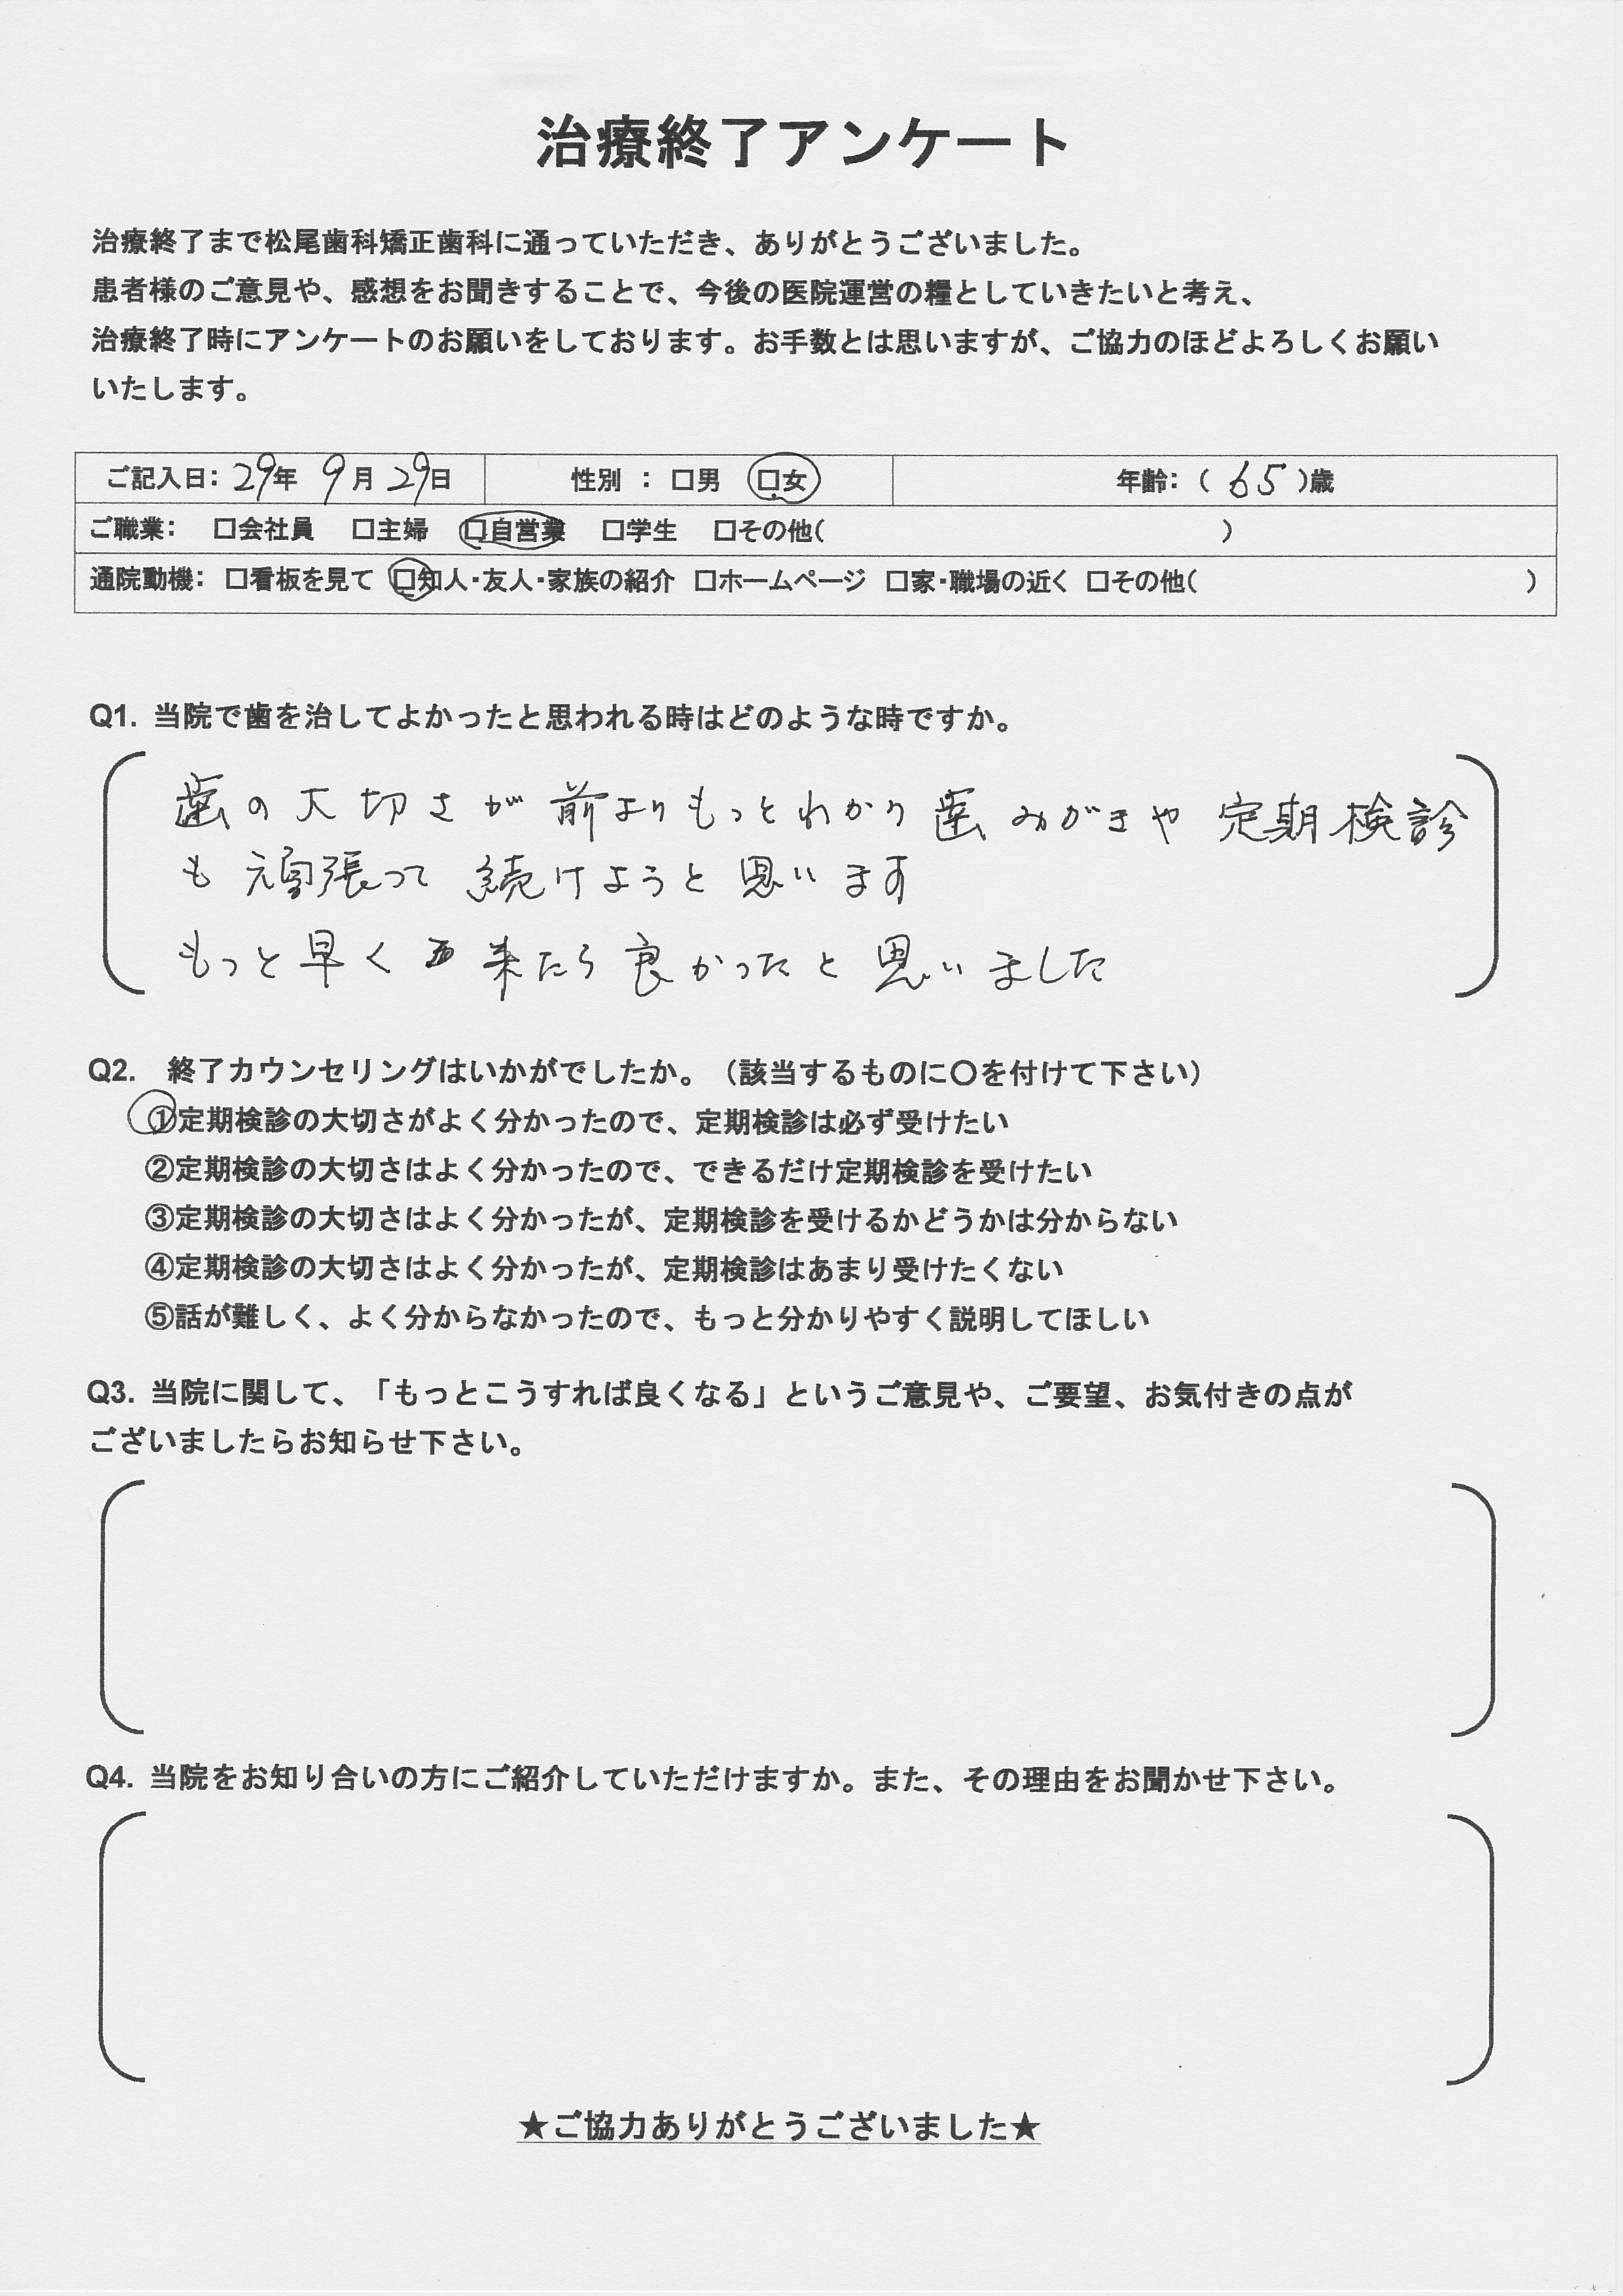 治療終了アンケート
治療終了まで松尾歯科矯正歯科に通っていただき、ありがとうございました。
患者様のご意見や、感想をお聞きすることで、今後の医院運営の糧としていきたいと考え、
治療終了時にアンケートのお願いをしております。お手数とは思いますが、ご協力のほどよろしくお願い
いたします。
ご記入日：29年 9月29日 性別 ： □男 □女 年齢：（ 65 ）歳
ご職業： □会社員 □主婦 □自営業 □学生 □その他（ ）
通院動機： □看板を見て □知人・友人・家族の紹介 □ホームページ □家・職場の近く □その他（ ）
Q1. 当院で歯を治してよかったと思われる時はどのような時ですか。
歯の大切さが前よりもっとわかり歯みがきや定期検診
も頑張って続けようと思います
もっと早く来たら良かったと思いました
Q2. 終了カウンセリングはいかがでしたか。（該当するものに〇を付けて下さい）
①定期検診の大切さがよく分かったので、定期検診は必ず受けたい
②定期検診の大切さはよく分かったので、できるだけ定期検診を受けたい
③定期検診の大切さはよく分かったが、定期検診を受けるかどうかは分からない
④定期検診の大切さはよく分かったが、定期検診はあまり受けたくない
⑤話が難しく、よく分からなかったので、もっと分かりやすく説明してほしい
Q3. 当院に関して、「もっとこうすれば良くなる」というご意見や、ご要望、お気付きの点が
ございましたらお知らせ下さい。
Q4. 当院をお知り合いの方にご紹介していただけますか。また、その理由をお聞かせ下さい。
★ご協力ありがとうございました★